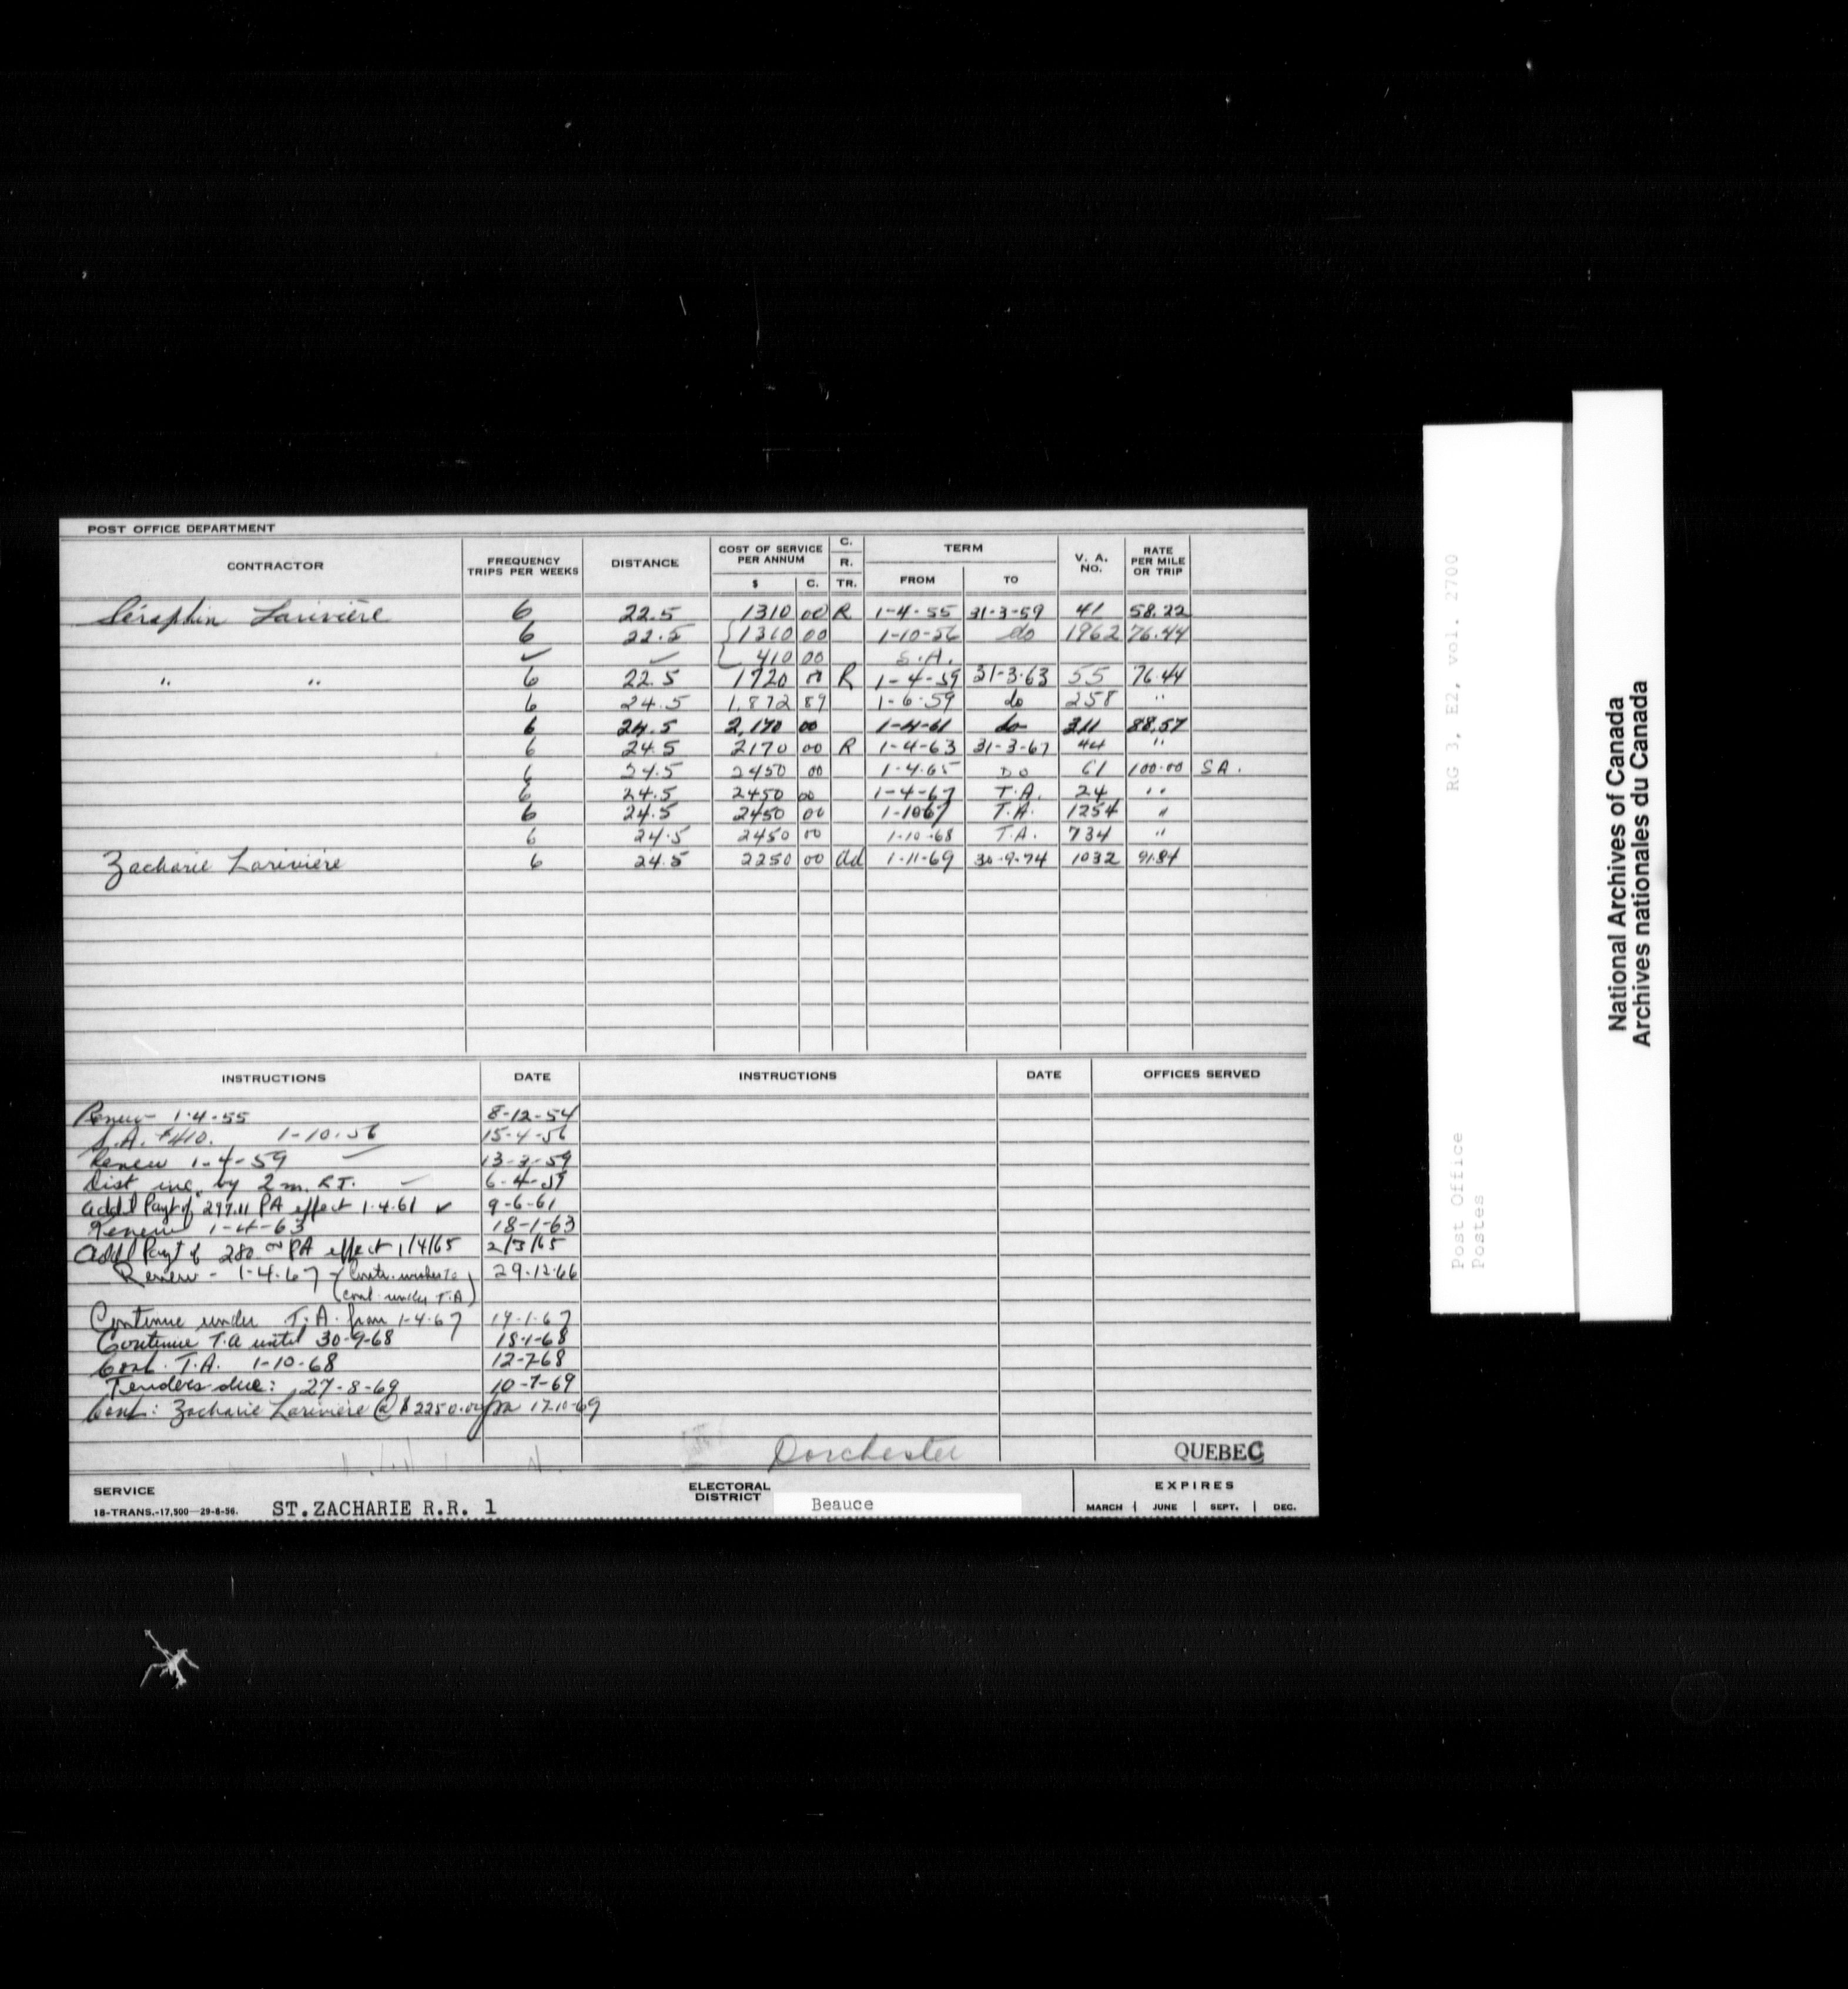 POST OFFICE DEPARTMENT
CONTRACTOR FREQUENCY TRIPS PER WEEKS DISTANCE COST OF SERVICE PER ANNUM $ C. C. R. TR. TERM FROM TO V. A. NO. RATE PER MILE OR TRIP
Séraphin Larivière 6 22.5 1310 00 R 1-4-55 31-3-59 41 58.22
6 22.5 1310 00 1-10-56 do 1962 76.44
✓ ✓ 410 00 S.A.
" " 6 22.5 1720 00 R 1-4-59 31-3-63 55 76.44
6 24.5 1,872 89 1-6-59 do 258 "
6 24.5 2,170 00 1-4-61 do 311 88.57
6 24.5 2170 00 R 1-4-63 31-3-67 44 "
6 24.5 2450 00 1-4-65 DO 61 100.00 SA.
6 24.5 2450 00 1-4-67 T.A. 24 "
6 24.5 2450 00 1-1067 T.A. 1254 "
6 24.5 2450 00 1-10-68 T.A. 734 "
Zacharie Larivière 6 24.5 2250 00 Ad 1-11-69 30-9-74 1032 91.84
INSTRUCTIONS DATE INSTRUCTIONS DATE OFFICES SERVED
Renew 1-4-55 8-12-54
S.A. $410. 1-10-56 15-4-56
Renew 1-4-59 13-3-59
Dist inc. by 2 m. R.T. 6-4-59
Add'l Payt of 297.11 PA effect 1.4.61 ✓ 9-6-61
Renew 1-4-63 18-1-63
Add'l Payt of 280.00 PA effect 1/4/65 2/3/65
Renew - 1-4-67 (Contr. wishes to 29-12-66
cont. under T.A)
Continue under T.A. from 1-4-67 17-1-67
Continue T.A until 30-9-68 18-1-68
Cont. T.A. 1-10-68 12-7-68
Tenders due: 27-8-69 10-7-69
Cont: Zacharie Larivière @ $2250.00 pa 17-10-69
Dorchester QUEBEC
SERVICE ELECTORAL DISTRICT Beauce EXPIRES
18-TRANS.-17,500—29-8-56. ST.ZACHARIE R.R. 1 MARCH JUNE SEPT. DEC.
RG 3, E2, vol. 2700
Post Office
Postes
National Archives of Canada
Archives nationales du Canada